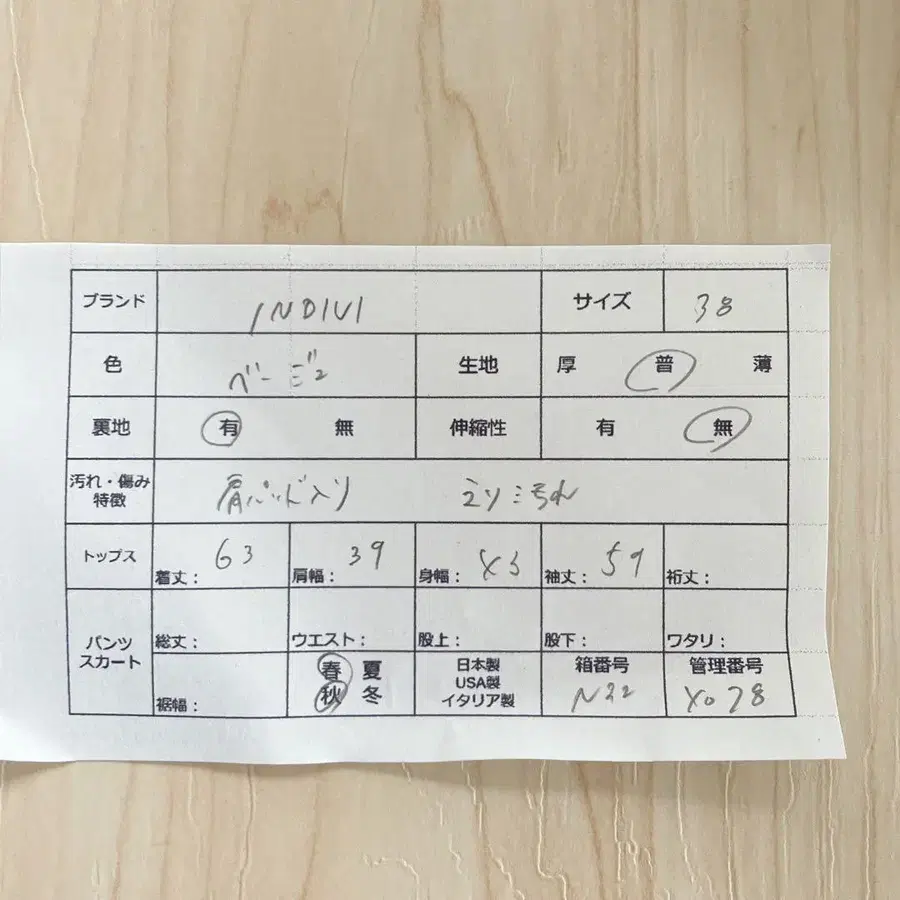 ブランド INDIVI サイズ 38
色 ベージュ 生地 厚 普 薄
裏地 有 無 伸縮性 有 無
汚れ・傷み
特徴 肩パット入り えりに汚れ
トップス 着丈： 63 肩幅： 39 身幅： 43 袖丈： 59 裄丈：
パンツ
スカート
総丈： ウエスト： 股上： 股下： ワタリ：
裾幅：
春 夏
秋 冬
日本製
USA製
イタリア製
箱番号
N22
管理番号
4078